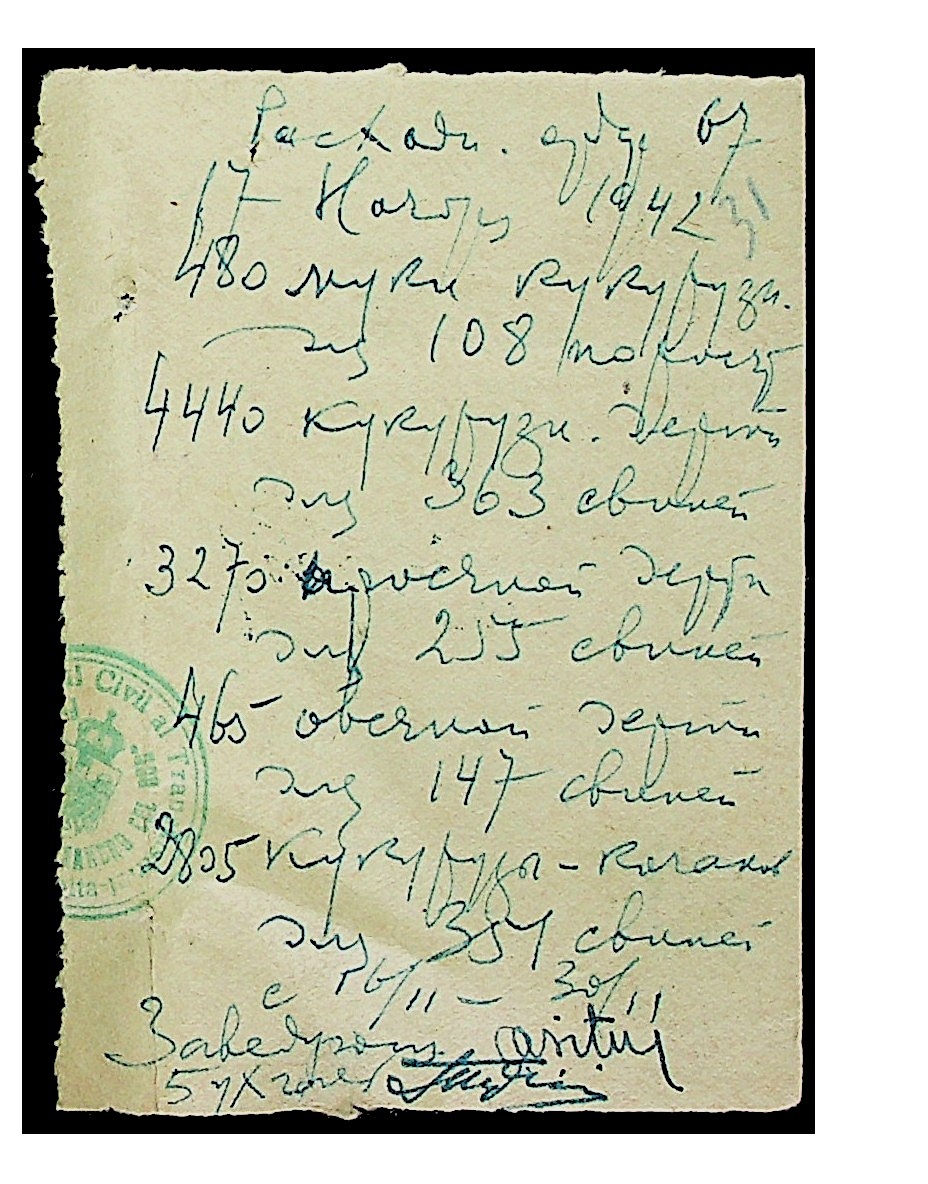 Расходн. ордер 67
17 Ноября 1942
480 муки кукурузн.
для 108 поросят
4440 кукурузн. дерти
для 363 свиней
3270 просяной дерти
для 255 свиней
465 овсяной дерти
для 147 свиней
2805 Кукурузы - кочанов
для 351 свиней
с 16/11 - 30/11
Civil al Tran